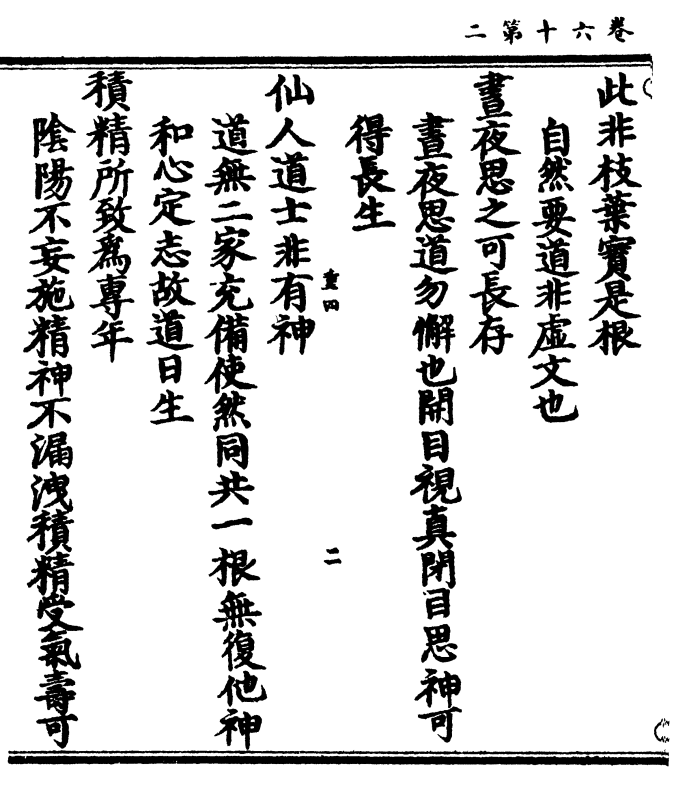 卷六十第二
此非枝葉實是根
自然要道非虛文也
晝夜思之可長存
晝夜思道勿懈也開目視真閉目思神可
得長生
重四
二
仙人道士非有神
道無二家充備使然同共一根無復他神
和心定志故道日生
積精所致為專年
陰陽不妄施精神不漏洩積精受氣壽可